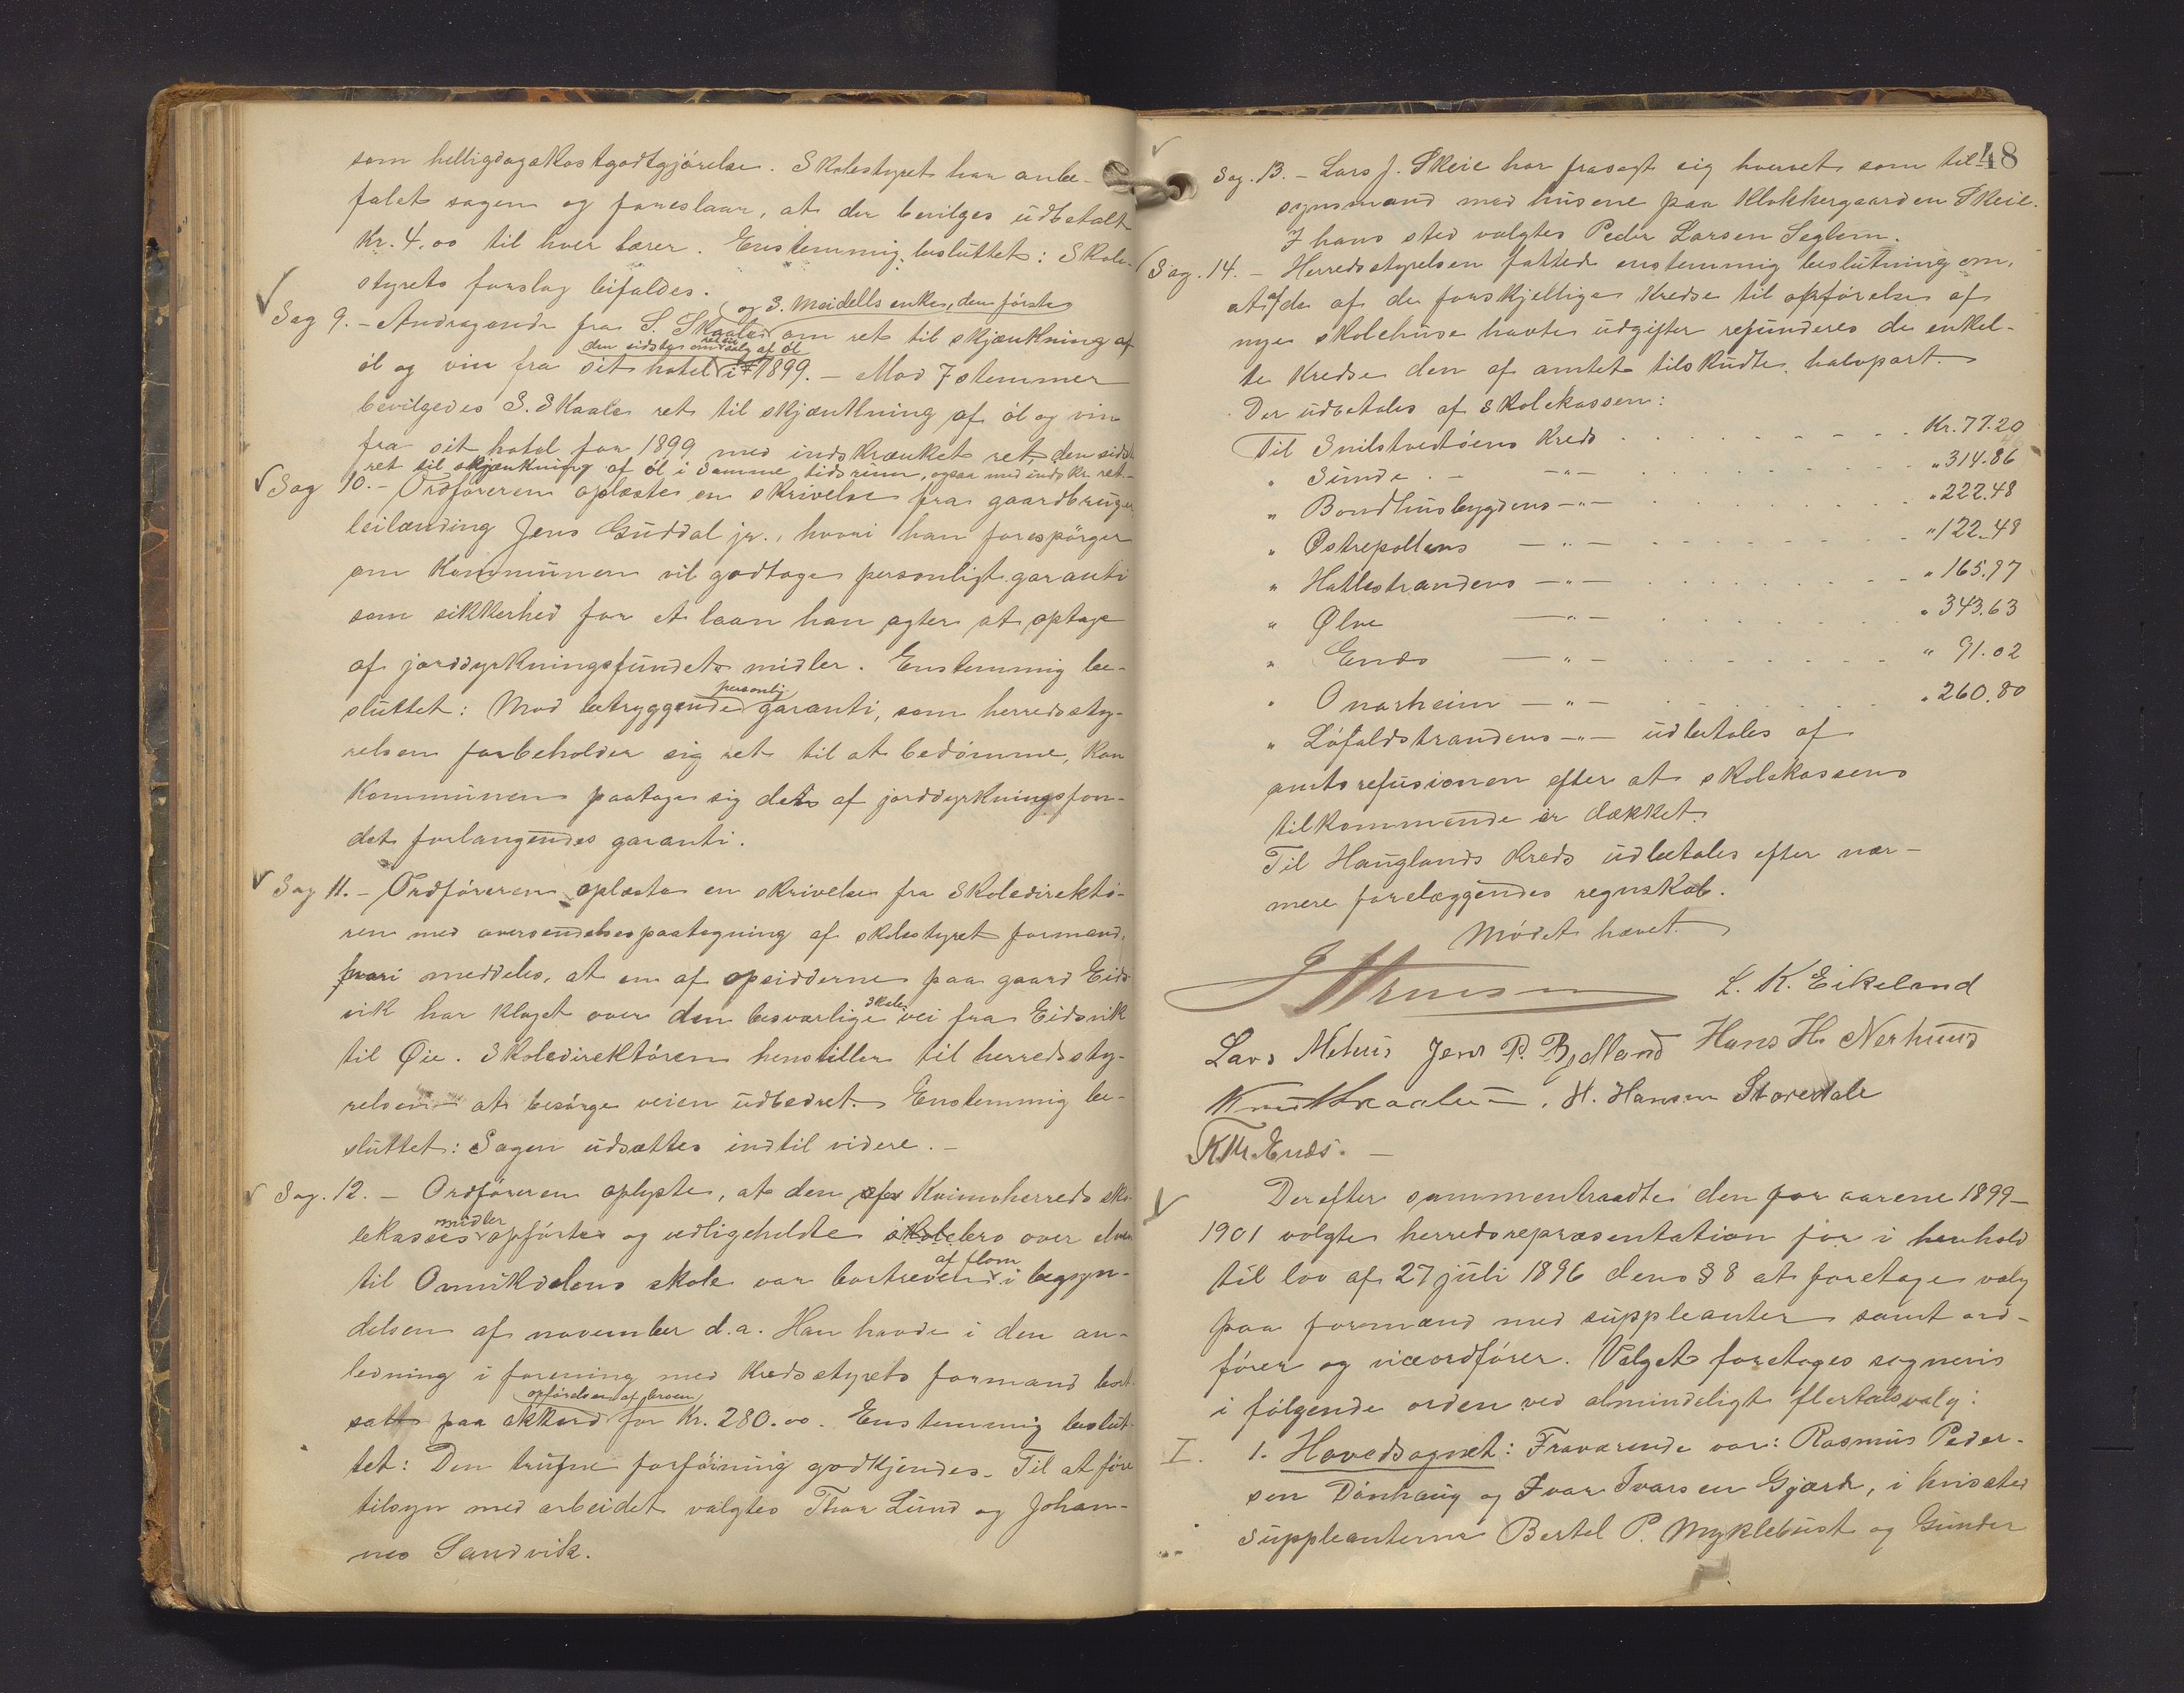 som helligdagskostgodtgjörelse. Skolestyret har anbe-
falet sagen og foreslaar, at der bevilges udbetalt
Kr. 4.00 til hver lærer. Enstemmig besluttet: Skole-
styrets forslag bifaldes.
og S. Meidells enke, den förste
Sag 9. - Andragende fra S. Skaale om ret til skjænkning af
den sidste om ret til udsalg af öl
öl og vin fra sit hotel i 1899. - Mod 7 stemmer
bevilgedes S. Skaale ret til skjænkning af öl og vin
fra sit hotel for 1899 med indskrænket ret, den sidste
ret til skjænkning af öl i samme tidsrum, ogsaa med indskr. ret.
Sag 10. - Ordföreren oplæste en skrivelse fra gaardbruger
leilænding Jens Guddal jr., hvori han forespörger
om Kommunen vil godtage personligt garanti
som sikkerhed for et laan han agter at optage
af jorddyrkningsfundets midler. Enstemmig be-
personlig
sluttet: Mod betryggende garanti, som herredssty-
relsen forbeholder sig ret til at bedömme, kan
Kommunen paatage sig den af jorddyrkningsfon-
det forlangendes garanti.
Sag 11. - Ordföreren oplæste en skrivelse fra Skoledirektö-
ren med oversendelsespaategning af skolestyret formand,
hvori meddeles, at en af opsidderne paa gaard Eids-
skole
vik har klaget over den besværlige vei fra Eidsvik
til Øie. Skoledirektören henstiller til herredssty-
relsen at besörge veien udbedret. Enstemmig be-
sluttet: Sagen udsættes indtil videre. -
Sag. 12. - Ordföreren oplyste, at den af Kvinnherreds sko-
midler
lekasses opförte og vedligeholdte skolebro over elven
af flom
til Omvikdalens skole var bortrevet i begyn-
delsen af november d.a. Han havde i den an-
ledning i forening med Kredsstyrets formand bort-
opförelsen af broen
satt paa akkord for Kr. 280.00. Enstemmig beslut-
tet: Den trufne forföining godkjendes. Til at före
tilsyn med arbeidet valgtes Thor Lund og Johan-
nes Sandvik.
48
Sag. 13. - Lars J. Skeie har frasagt sig hvervet som til-
synsmand med husene paa Klokkergaarden Skeie.
I hans sted valgtes Peder Larsen Seglem.
Sag. 14. - Herredsstyrelsen fattede enstemmig beslutning om,
at af de af de forskjellige Kredse til opförelse af
nye skolehuse havte udgifter refunderes de enkel-
te Kredse den af amtet tilskudte halvpart.
Der udbetales af skolekassen:
Til Snilstveitöens Kreds . . . . . . Kr. 77.20
" Sunde - " - . . . . . . " 314.86
" Bondhusbygdens - " - . . . . . . " 222.48
" Østrepollens - " - . . . . . . " 122.48
" Hatlestrandens - " - . . . . . . " 165.97
" Ølve - " - . . . . . . " 343.63
" Enes - " - . . . . . . " 91.02
" Onarheim - " - . . . . . . " 260.80
" Löfaldstrandens - " - udbetales af
amtsrefusionen efter at skolekassens
tilkommende er dækket.
Til Hauglands Kreds udbetales efter nær-
mere forelæggendes regnskab.
Mödet hævet.
L. K. Eikeland
Lars Mehus Jens P. Bjelland Hans H. Nerhuus
Knut Skaale. H. Hansen Storedale
K. M. Enæs.
Derefter sammentraadte den for aarene 1899-
1901 valgte herredsrepræsentation for i henhold
til lov af 27 juli 1896 dens § 8 at foretage valg
paa formænd med suppleanter samt ord-
förer og viceordförer. Valget foretages sognevis
i fölgende orden ved almindeligt flertalsvalg:
I. 1. Hovedsognet: Fraværende var: Rasmus Peder-
sen Dönhaug og Ivar Ivarsen Gjærde, i hvis sted
suppleanterne Bertel P. Myklebust og Gunder